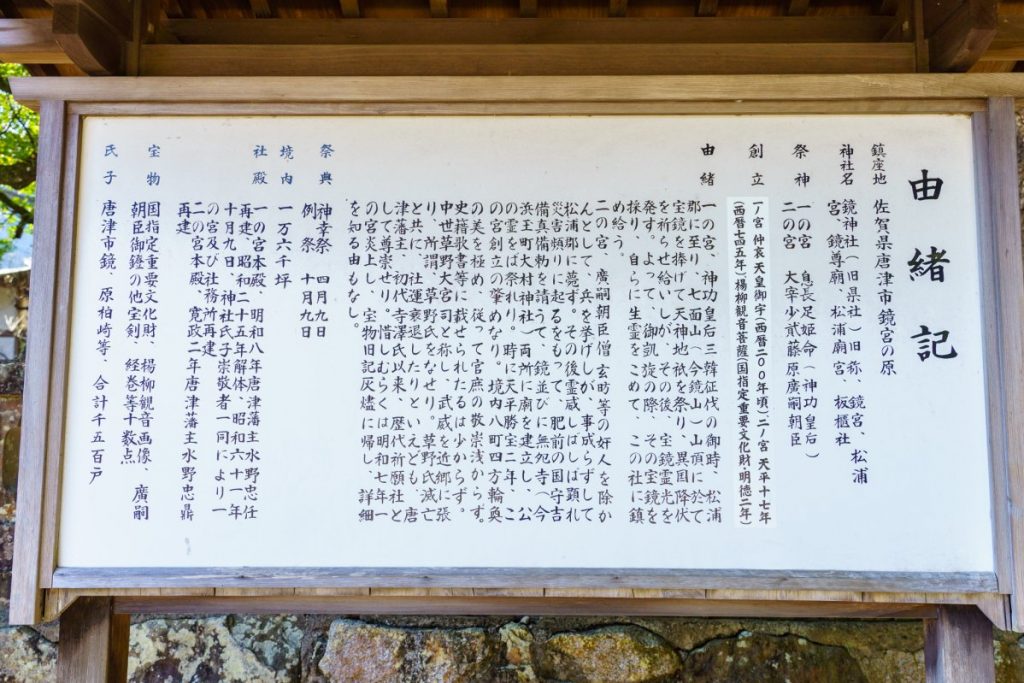 由緒記
鎮座地 佐賀県唐津市鏡宮の原
神社名 鏡神社(旧県社)旧称、鏡宮、松浦
宮、鏡尊廟、松浦廟宮、板櫃社
祭神 一の宮 息長足姫命(神功皇后)
二の宮 大宰少貳藤原廣嗣朝臣
創立 一ノ宮 仲哀天皇御宇(西暦二00年頃)二ノ宮 天平十七年
(西暦七四五年)楊柳観音菩薩(国指定重要文化財・明徳二年)
由緒 一の宮、神功皇后三韓征伐の御時、松浦
郡に至り、七面山(今鏡山)山頂に於て
宝鏡を捧げて天神地祇を祭り、異国降伏
を祈らせ給いしが、その後、宝鏡霊光を
発す。よって、御凱旋の際、その宝鏡を
採り、自らに生霊をこめて、この社に鎮
め給う。
二の宮、廣嗣朝臣僧玄昉等の奸人を除か
んとして、兵を挙げしが、事成らずして
松浦郡に薨ず。その後霊威、しばしば顕れ
災害頻りに起るをもって、肥前の国守吉
備真備勅を請うて、鏡並びに無怨寺(今
浜玉町大村神社)両所に廟を建立し、公
の霊をば祭れり。時に天平勝宝二年、こ
の宮創立の肇めなり。境内八町四方輪奐
の美を極め、従って官庶の敬崇浅からず。
史籍歌書等に載せられたるは少からず。
中世草野大宮司と称し、武威を近郷に張
り、所謂、草野氏をなせり。草野氏滅亡
と共に、社運衰退したりといえども、唐
津藩主、初代寺澤氏以来、歴代祈願社と
して尊崇せり。惜しむらくは明和七年一
の宮炎上し、宝物旧記灰燼に帰し、詳細
を知る由もなし。
祭典 神幸祭 四月九日
例祭 十月九日
境内 一万六千坪
社殿 一の宮本殿、明和八年唐津藩主水野忠任
再建、昭和二十五年解体、昭和六十一年
十月九日、神社氏子崇敬者一同により一
の宮及び社務所再建
二の宮本殿、寛政二年唐津藩主水野忠鼎
再建
宝物 国指定重要文化財、楊柳観音画像、廣嗣
朝臣御鐙の他宝剣、経巻等十数点
氏子 唐津市鏡、原柏崎等、合計千五百戸